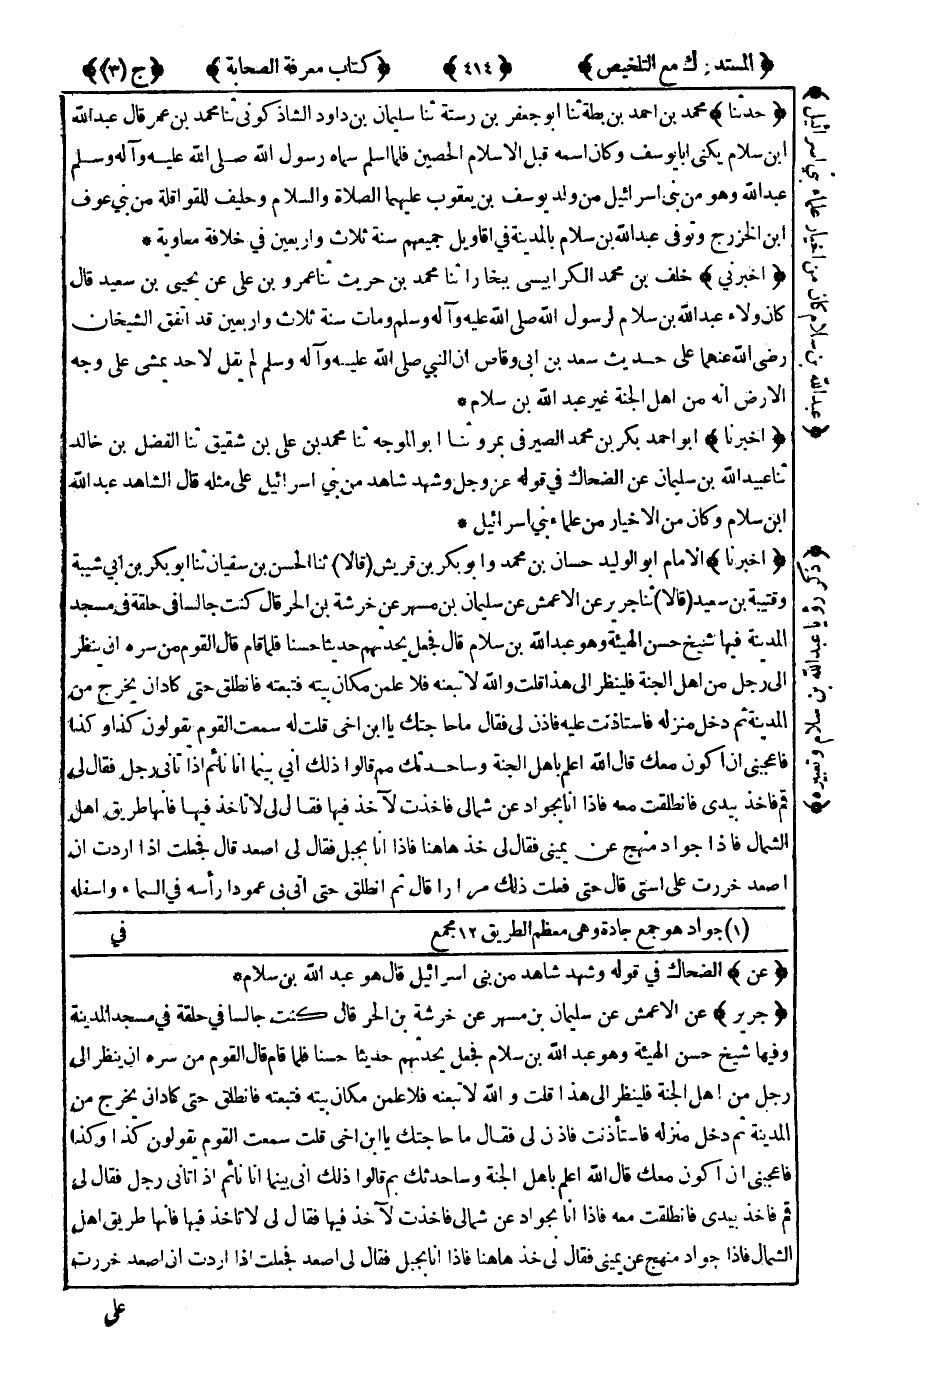 ﴿ المستدرك مع التلخيص ﴾ ﴿ ٤١٤ ﴾ ﴿ كتاب معرفة الصحابة ﴾ ﴿ ج (٣) ﴾
﴿ حدثنا ﴾ محمد بن احمد بن بطة ثنا ابو جعفر بن رستة ثنا سليمان بن داود الشاذكونى ثنا محمد بن عمر قال عبد الله
ابن سلام يكنى ابا يوسف وكان اسمه قبل الاسلام الحصين فلما اسلم سماه رسول الله صلى الله عليه وآله وسلم
عبد الله وهو من بنى اسرائيل من ولد يوسف بن يعقوب عليهما الصلاة والسلام وحليف للقواقلة من بني عوف
ابن الخزرج وتوفى عبد الله بن سلام بالمدينة في اقاويل جميعهم سنة ثلاث واربعين في خلافة معاوية *
﴿ اخبرني ﴾ خلف بن محمد الكرابيسى ببخارا ثنا محمد بن حريث ثنا عمرو بن على عن يحيى بن سعيد قال
كان ولاء عبد الله بن سلام لرسول الله صلى الله عليه وآله وسلم ومات سنة ثلاث واربعين قد اتفق الشيخان
رضى الله عنهما على حديث سعد بن ابى وقاص ان النبي صلى الله عليه وآله وسلم لم يقل لاحد يمشى على وجه
الارض انه من اهل الجنة غير عبد الله بن سلام *
﴿ اخبرنا ﴾ ابو احمد بكر بن محمد الصيرفى بمرو ثنا ابو الموجه ثنا محمد بن على بن شقيق ثنا الفضل بن خالد
ثنا عبيد الله بن سليمان عن الضحاك في قوله عز وجل وشهد شاهد من بني اسرائيل على مثله قال الشاهد عبد الله
ابن سلام وكان من الاخيار من علماء بني اسرائيل *
﴿ اخبرنا ﴾ الامام ابو الوليد حسان بن محمد وابو بكر بن قريش (قالا) ثنا الحسن بن سفيان ثنا ابو بكر بن ابي شيبة
وقتيبة بن سعيد (قالا) ثنا جرير عن الاعمش عن سليمان بن مسهر عن خرشة بن الحر قال كنت جالسا فى حلقة فى مسجد
المدينة فيها شيخ حسن الهيئة وهو عبد الله بن سلام قال فجعل يحدثهم حديثا حسنا فلما قام قال القوم من سره ان ينظر
الى رجل من اهل الجنة فلينظر الى هذا قلت والله لاتبعنه فلا علمن مكان بيته فتبعته فانطلق حتى كاد ان يخرج من
المدينة ثم دخل منزله فاستاذنت عليه فاذن لى فقال ما حاجتك يا ابن اخى قلت له سمعت القوم يقولون كذا وكذا
فاعجبنى ان اكون معك قال الله اعلم باهل الجنة وساحدثك مم قالوا ذلك أنى بينما انا نائم اذ اتانى رجل فقال لى
قم فاخذ بيدى فانطلقت معه فاذا انا بجواد عن شمالى فاخذت لآخذ فيها فقال لى لا تاخذ فيها فانها طريق اهل
الشمال فاذا جواد منهج عن يمينى فقال لى خذ هاهنا فاذا انا بجبل فقال لى اصعد قال فجعلت اذا اردت ان
اصعد خررت على استى قال حتى فعلت ذلك مرارا قال ثم انطلق حتى اتى بى عمودا رأسه في السماء واسفله
(١) جواد هو جمع جادة وهى معظم الطريق ١٢ مجمع
في
﴿ عن ﴾ الضحاك في قوله وشهد شاهد من بنى اسرائيل قال هو عبد الله بن سلام *
﴿ جرير ﴾ عن الاعمش عن سليمان بن مسهر عن خرشة بن الحر قال كنت جالسا في حلقة في مسجد المدينة
وفيها شيخ حسن الهيئة وهو عبد الله بن سلام فجعل يحدثهم حديثا حسنا فلما قام قال القوم من سره ان ينظر الى
رجل من اهل الجنة فلينظر الى هذا قلت والله لاتبعنه فلاعلمن مكان بيته فتبعته فانطلق حتى كاد ان يخرج من
المدينة ثم دخل منزله فاستأذنت فاذن لى فقال ما حاجتك يا ابن اخى قلت سمعت القوم يقولون كذا وكذا
فاعجبنى ان اكون معك قال الله اعلم باهل الجنة وساحدثك بم قالوا ذلك انى بينما انا نائم اذ اتانى رجل فقال لى
قم فاخذ بيدى فانطلقت معه فاذا انا بجواد عن شمالى فاخذت لآخذ فيها فقال لى لا تاخذ فيها فانها طريق اهل
الشمال فاذا جواد منهج عن يمينى فقال لى خذ هاهنا فاذا انا بجبل فقال لى اصعد فجعلت اذا اردت ان اصعد خررت
على
﴿ عبد الله بن سلام كان من اخيار علماء بني اسرائيل ﴾
﴿ ذكر رؤيا عبد الله بن سلام وتعبيره ﴾